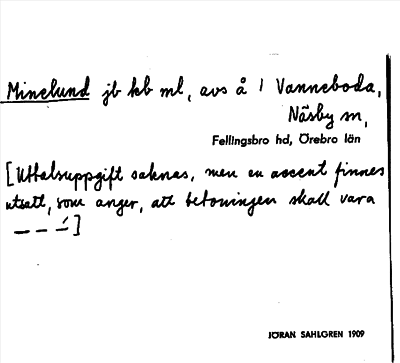 Minelund jb kb ml, avs å 1 Vanneboda,
Näsby sn,
Fellingsbro hd, Örebro län
[Uttalsuppgift saknas, men en accent finnes
utsatt, som anger, att betoningen skall vara
– – –́ ]
JÖRAN SAHLGREN 1909